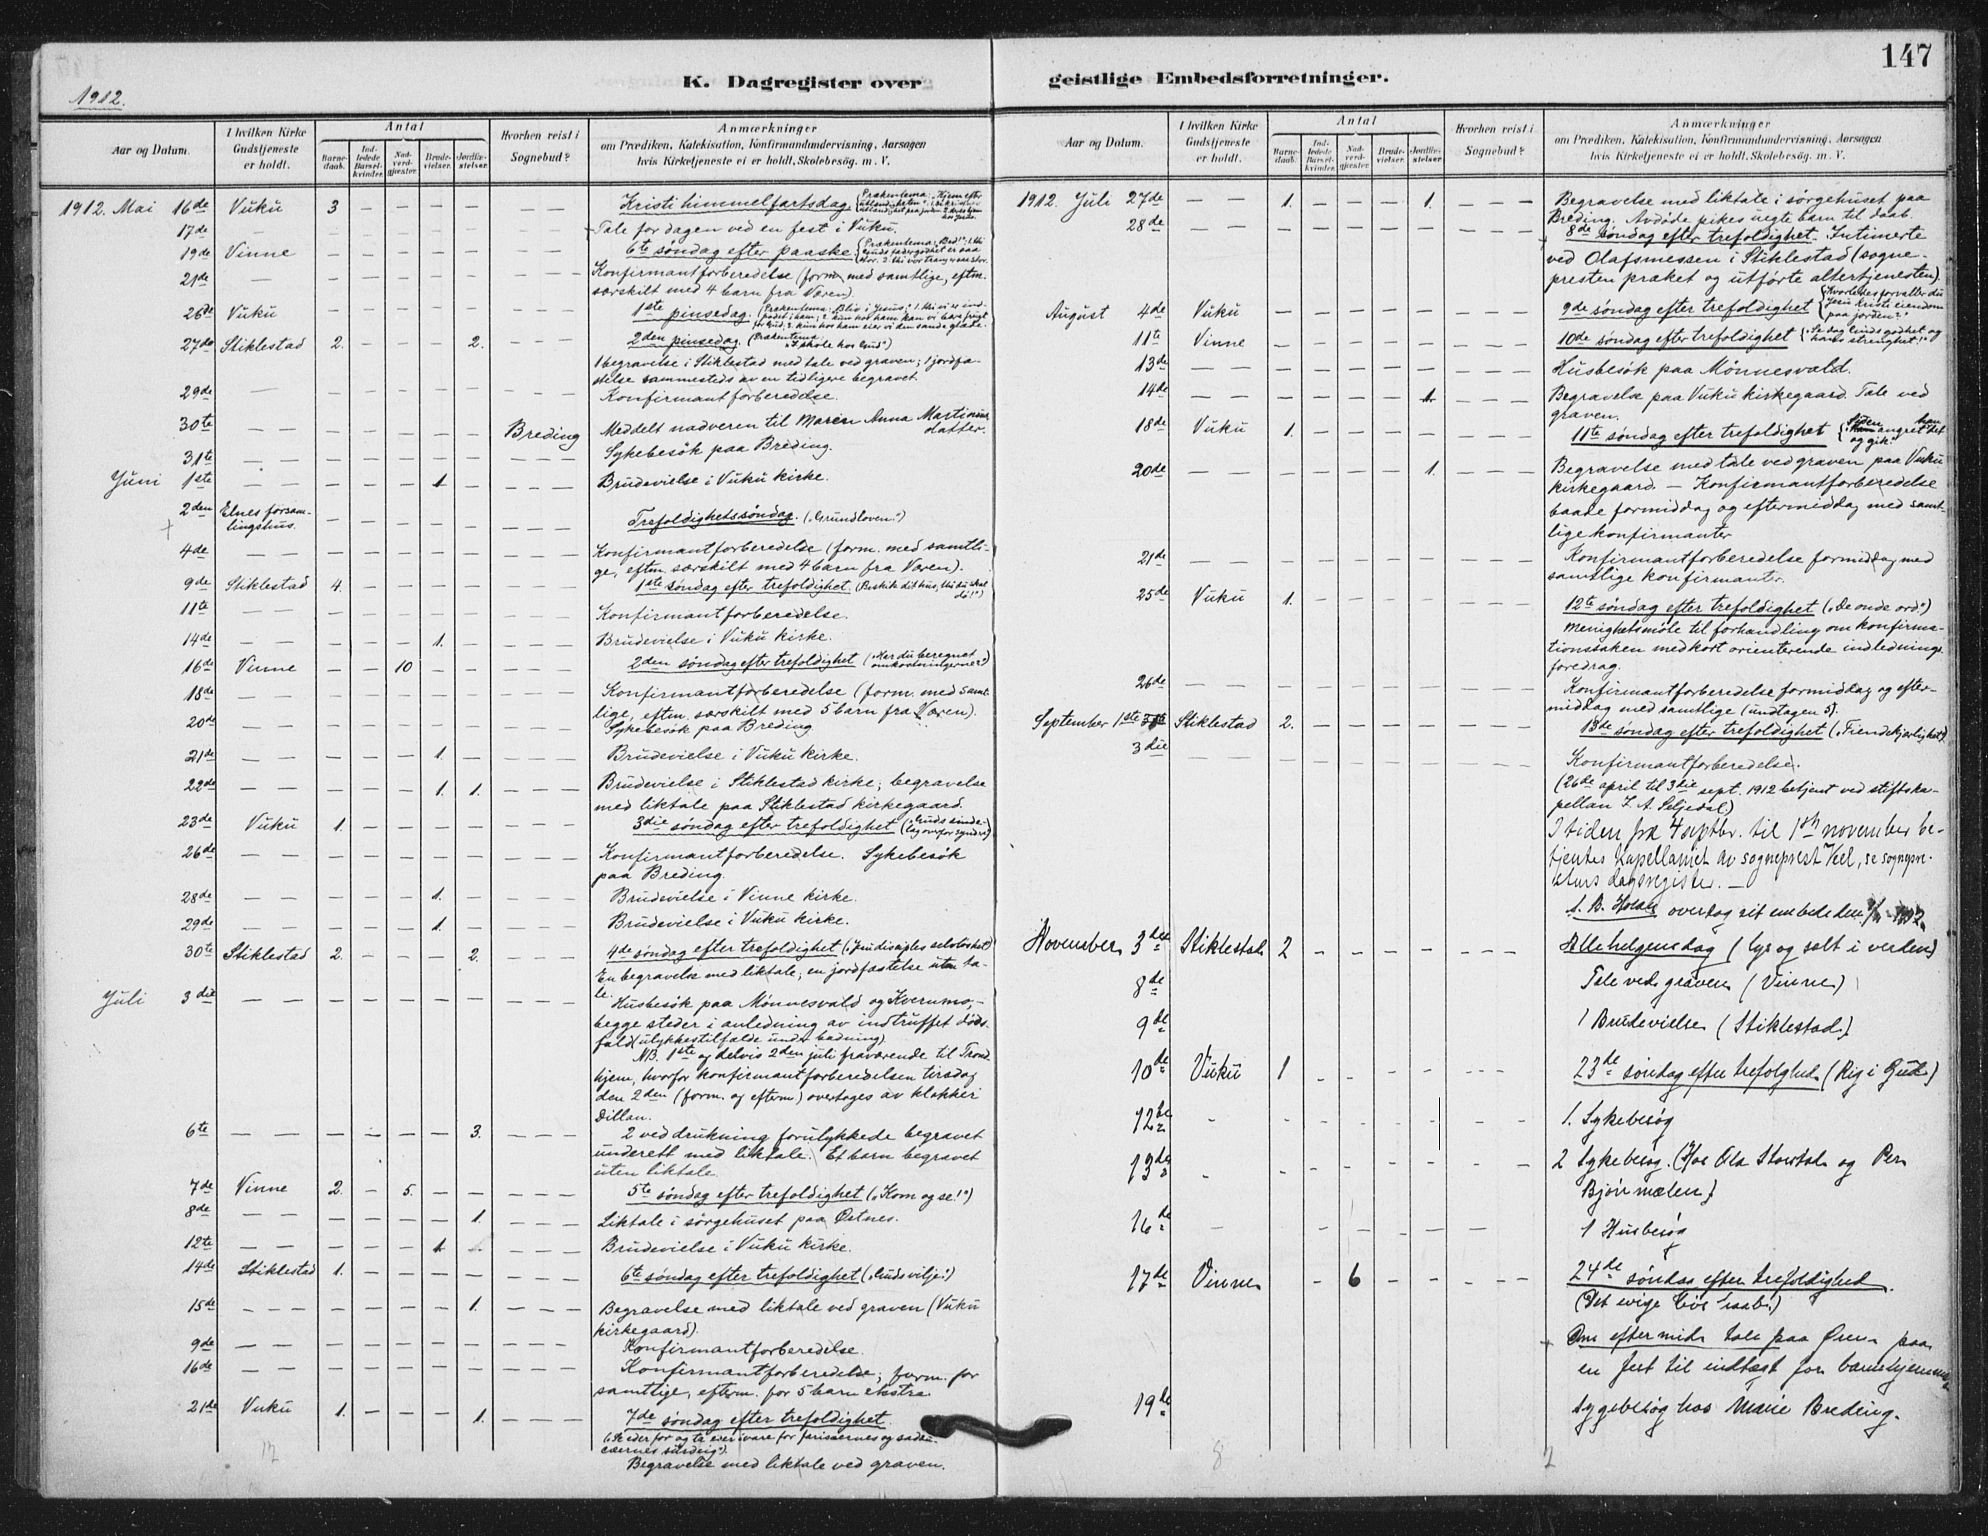 147
K. Dagregister over geistlige Embedsforretninger.
1912.
Aar og Datum.
I hvilken Kirke Gudstjeneste er holdt.
Antal
Barnedaab.
Indledede Barselkvinder.
Nadverdgjester.
Brudevielser.
Jordfæstelser.
Hvorhen reist i Sognebud?
Anmærkninger
om Prædiken, Katekisation, Konfirmandundervisning, Aarsagen
hvis Kirketjeneste ei er holdt, Skolebesøg m. V.
1912. Mai 16de Vuku 3 — — — — — — — Kristi himmelfartsdag
17de — Tale for dagen ved en fest i Vuku.
19de Vinne — 6te søndag efter paaske
21de — Konfirmantforberedelse (form. med samtlige, eftm.
særskilt med 4 barn fra Væren).
26de Vuku — 1ste pinsedag.
27de Stiklestad 2. — — — 2. 2den pinsedag. (Prækentema: "I skole hos Gud")
1 begravelse i Stiklestad med tale ved graven; 1 jordfæ-
stelse sammesteds av en tidligere begravet
29de — Konfirmantforberedelse.
30te — Breding Meddelt nadveren til Maren Anna Martinus-
datter.
31te — Sykebesøk paa Breding.
Juni 1ste — 1 Brudevielse i Vuku kirke.
2den Elnes forsam-
lingshus. — Trefoldighetssøndag. („Grundloven.")
4de — Konfirmantforberedelse (form. med samtli-
ge, eftm. særskilt med 4 barn fra Væren).
9de Stiklestad 4. — 1ste søndag efter trefoldighet. (Beskik dit hus, thi du skal
dø!")
11te — Konfirmantforberedelse.
14de — 1. Brudevielse i Vuku kirke.
16de Vinne — — 10 — 2den søndag efter trefoldighet („Har du beregnet
omkostningerne?")
18de — Konfirmantforberedelse (form. med samt-
lige, eftm. særskilt med 5 barn fra Væren).
20de — Sykebesøk paa Breding
21de — 1. Brudevielse i Vuku kirke.
22de — 1. 1. Brudevielse i Stiklestad kirke; begravelse
med liktale paa Stiklestad kirkegaard.
23de Vuku 1. — 3die søndag efter trefoldighet („Guds sinde-
lag overfor syndre")
26de — Konfirmantforberedelse. Sykebesøk
paa Breding.
28de — 1. Brudevielse i Vinne kirke.
29de — 1. Brudevielse i Vuku kirke.
30te Stiklestad 2. — — — 2. 4de søndag efter trefoldighet
En begravelse med liktale; en jordfæstelse uten ta-
le.
Juli 3die — Husbesøk paa Mønnesvald og Kverumo,—
begge steder i anledning av indtruffet døds-
fald (ulykkestilfælde under badning)
NB. 1ste og delvis 2den juli fraværende til Trond-
hjem, hvorfor konfirmantforberedelsen tirsdag
den 2den (form. og efterm.) overtoges av klokker
Dillan.
6te — 3. 2 ved drukning forulykkede begravet
underett med liktale. Et barn begravet
uten liktale.
7de Vinne 2. — 5. — 5te søndag efter trefoldighet („Kom og se!")
8de — 1. Liktale i sørgehuset paa Østnes.
12te — 1. — Brudevielse i Vuku kirke.
14de Stiklestad 1. — 6te søndag efter trefoldighet („Guds vilje.")
15de — 1. Begravelse med liktale ved graven (Vuku
kirkegaard).
9de — Konfirmantforberedelse.
16de — Konfirmantforberedelse; form. for
samtlige, efterm. for 5 barn ekstra.
21de Vuku 1. — — — 1. 7de søndag efter trefoldighet.
(„Se eder for og ta eder ivare for farisæernes og sadu-
cæernes surdeig").
Begravelse med liktale ved graven.
Aar og Datum.
I hvilken Kirke Gudstjeneste er holdt.
Antal
Barnedaab.
Indledede Barselkvinder.
Nadverdgjester.
Brudevielser.
Jordfæstelser.
Hvorhen reist i Sognebud?
Anmærkninger
om Prædiken, Katekisation, Konfirmandundervisning, Aarsagen
hvis Kirketjeneste ei er holdt, Skolebesøg m. V.
1912. Juli 27de — 1. — — — 1. Begravelse med liktale i sørgehuset paa
Breding. Avdøde pikes uegte barn til daab.
28de — 8de søndag efter trefoldighet. Intimerte
ved Olafsmessen i Stiklestad (sogne-
presten præket og utførte altertjenesten).
August 4de Vuku — 9de søndag efter trefoldighet („Hvorledes forvalter du
Jesu Kristi eiendom
paa jorden?")
11te Vinne — 10de søndag efter trefoldighet („Se dag Guds godhet og
hans strenghet!")
13de — Husbesøk paa Mønnesvald.
14de — 1. Begravelse paa Vuku kirkegaard. Tale ved
graven.
18de Vuku 1. — 11te søndag efter trefoldighet („Siden angret han det
og gik.")
20de — 1. Begravelse med tale ved graven paa Vuku
kirkegaard. — Konfirmantforberedelse
baade formiddag og eftermiddag med samt-
lige konfirmanter
21de — Konfirmantforberedelse formiddag med
samtlige konfirmanter.
25de Vuku 1. — 12te søndag efter trefoldighet („De onde ord")
Menighetsmøte til forhandling om konfirma-
tionssaken med kort orienterende indlednings-
foredrag.
26de — Konfirmantforberedelse formiddag og efter-
middag med samtlige (undtagen 5).
September 1ste Stiklestad 2. — 13de søndag efter trefoldighet („Fiendekjærlighet)
3die — Konfirmantforberedelse.
(26de april til 3die sept. 1912 betjent ved stiftska-
pellan I. A. Seljedal.)
I tiden fra 4 septbr. til 1ste november be-
tjentes kapellaniet av sogneprest Veel, se sognepre-
stens dagsregister. —
A. B. overtog sit embede den 1/11 1912.
November 3die Stiklestad 2 — Allehelgensdag (lys og salt i verden)
8de Tale ved graven (Vinne)
9de 1 Brudevielse (Stiklestad)
10de Vuku 1 — 23de søndag efter trefoldighed (Rig i Gud)
12te — 1. Sykebesøg
13de — 2 Sykebesøg. (Hos Ola Storstal og Per
Bjørnmælen)
16de — 1 Husbesøg
17de Vinne — 6 — 24de søndag efter trefoldighed.
Om eftermid. tale paa Øren paa
en fest til indtægt for barnehjemmet
19de Sygebesøg hos Marie Breding.
12
8
2